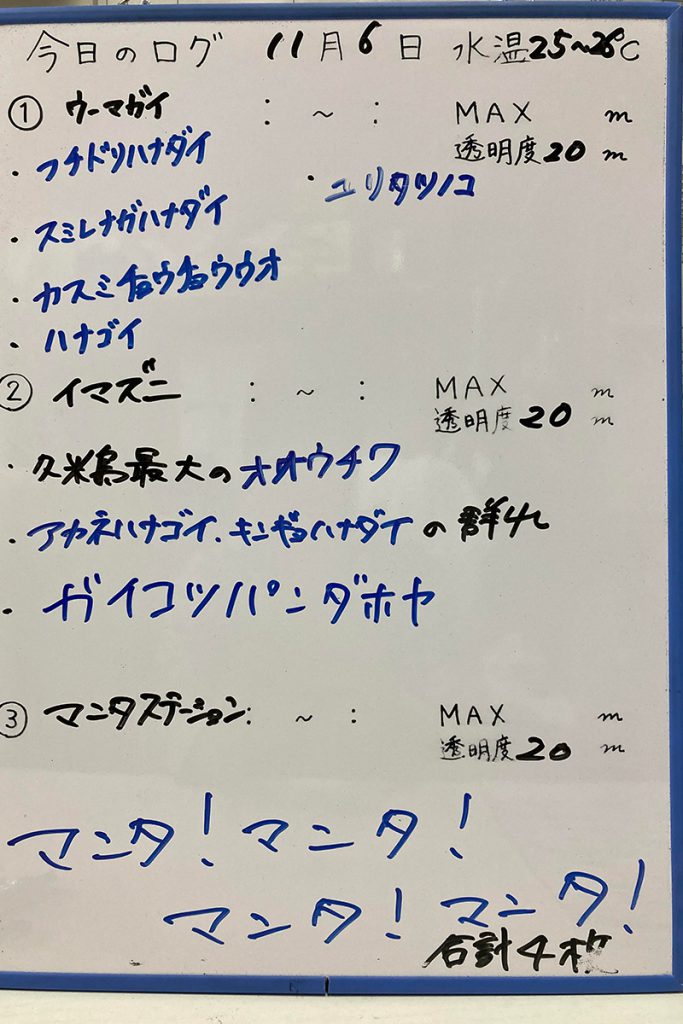 今日のログ 11月6日 水温25~26℃
① ウーマガイ : ~ : MAX m
透明度20m
・フチドリハナダイ
・ユリタツノコ
・スミレナガハナダイ
・カスミチョウチョウウオ
・ハナゴイ
② イマズニ : ~ : MAX m
透明度20m
・久米島最大のオオウチワ
・アカネハナゴイ、キンギョハナダイの群れ
・ガイコツパンダホヤ
③ マンタステーション : ~ : MAX m
透明度20m
マンタ!マンタ!
マンタ!マンタ!
合計4枚